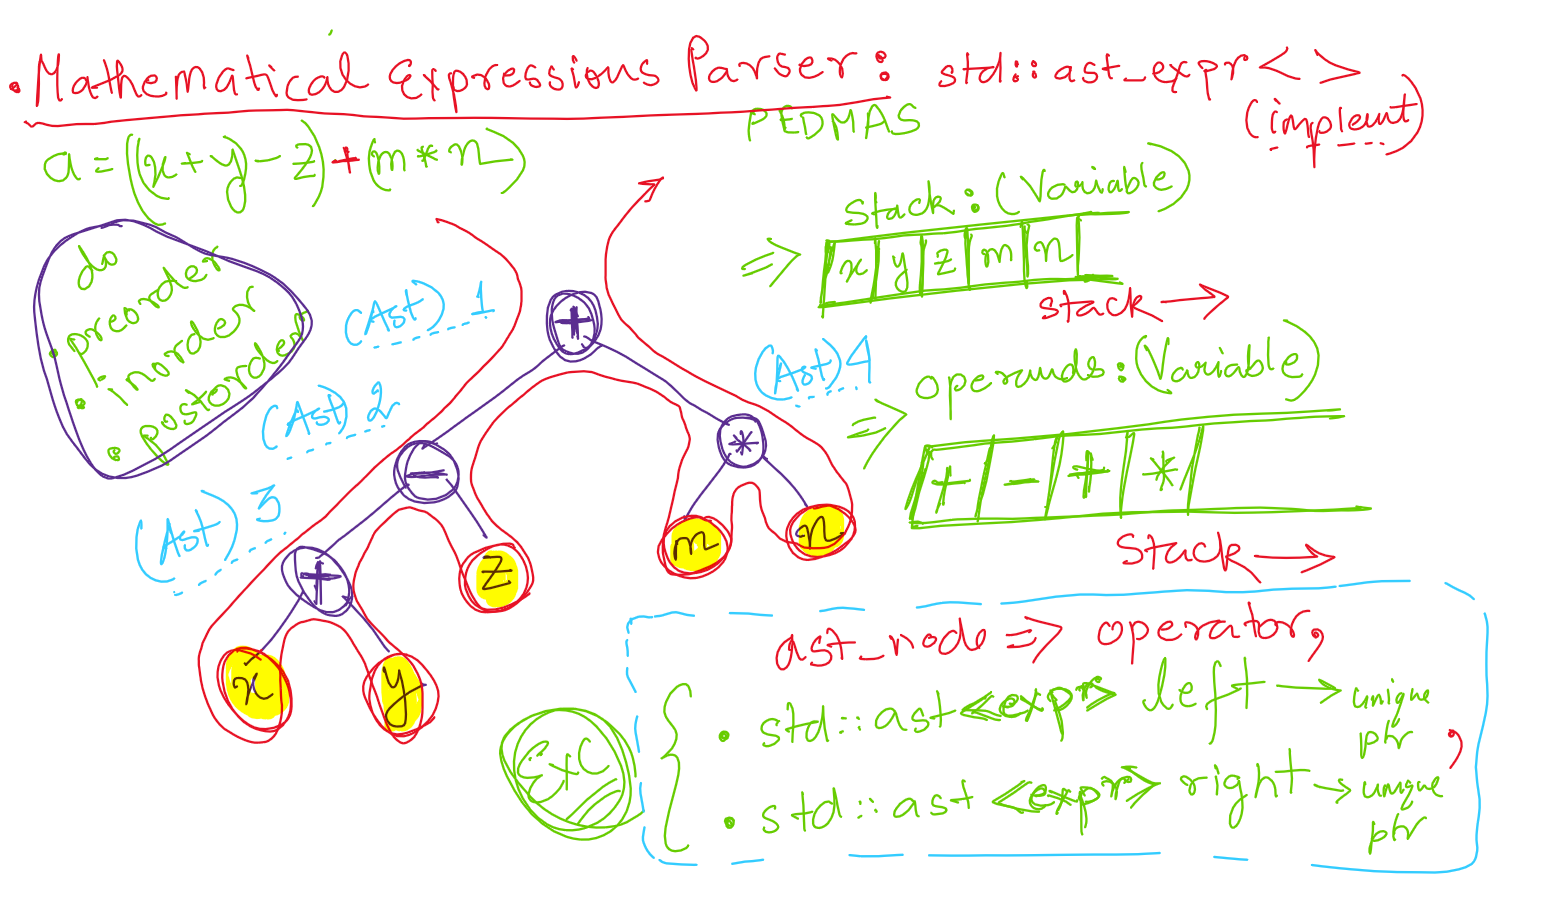 • Mathematical Expressions Parser: std::ast_expr< >
(implemt)
PEDMAS
a = ((x+y)-z)+(m*n)
do
• preorder
• inorder
• postorder
(Ast) 1
(Ast) 2
(Ast) 3
(Ast) 4
+
-
*
+
z
m
n
x
y
=> stack: (Variable)
x y z m n
stack →
=> operands: (Variable)
+ - + *
Stack →
ast_node => operator,
{ • std::ast<expr> left → unique ptr,
• std::ast<expr> right → unique ptr
ExC